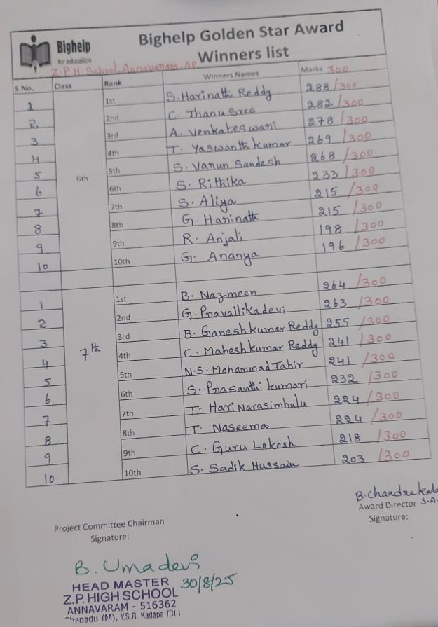 Bighelp
for education
Bighelp Golden Star Award
Winners list
Z.P.H School, Annavaram, AP
S.No. Class Rank Winners Names Marks 300
1 6th 1st S. Harinath Reddy 288/300
2 2nd C. Thanu Sree 282/300
3 3rd A. Venkateswari 278/300
4 4th T. Yaswanth Kumar 269/300
5 5th S. Varun Sandesh 268/300
6 6th S. Rithika 233/300
7 7th S. Aliya 215/300
8 8th G. Harinath 215/300
9 9th R. Anjali 198/300
10 10th G. Ananya 196/300
1 7th 1st B. Nazmeen 264/300
2 2nd G. Pravallika devi 263/300
3 3rd B. Ganesh kumar Reddy 255/300
4 4th C. Mahesh Kumar Reddy 241/300
5 5th N.S. Mohammad Tahir 241/300
6 6th S. Prasanthi kumari 232/300
7 7th T. Hari Narasimhulu 224/300
8 8th T. Naseema 224/300
9 9th C. Guru Lokesh 218/300
10 10th S. Sadik Hussain 203/300
B. Chandrakala
Award Director
Signature:
Project Committee Chairman
Signature:
B. Uma devi
30/8/25
HEAD MASTER
Z.P HIGH SCHOOL
ANNAVARAM - 516362
(M), Y.S.R. Kadapa (Dt)